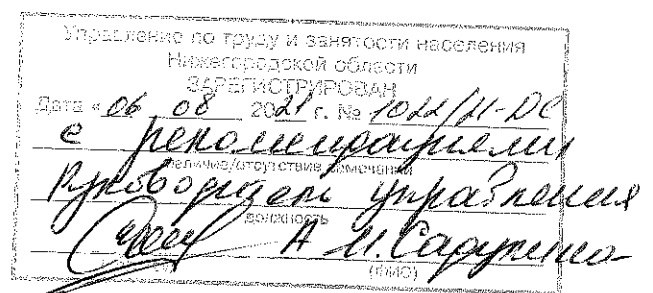 Управление по труду и занятости населения
Нижегородской области
ЗАРЕГИСТРИРОВАН
Дата « 06 08 2021 г. №
с рекомендациями
наличие/отсутствие замечаний
Руководитель управления
должность
А.И.
(ФИО)